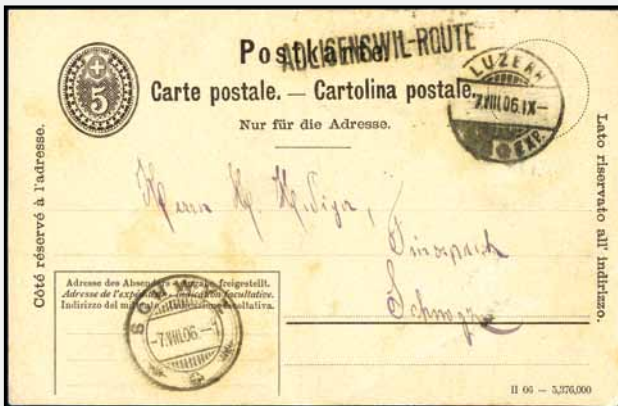 Postkarte.
ADLIGENSWIL-ROUTE
Carte postale. — Cartolina postale.
Nur für die Adresse.
5
LUZERN
7.VIII.06.IX–
EXP.
Côté réservé à l'adresse.
Lato riservato all' indirizzo.
Herrn
Schwyz
Adresse des Absenders freigestellt.
Adresse de l'expéditeur. Indication facultative.
Indirizzo del facoltativa.
SCHWYZ
-7.VIII.06.–
II 06 — 5,376,000